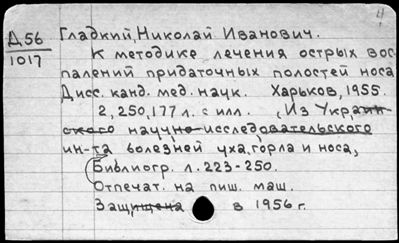 4
Д56
1017
Гладкий, Николай Иванович.
К методике лечения острых вос-
палений придаточных полостей носа
Дисс. канд. мед. наук. Харьков, 1955.
2, 250, 177 л. с илл. (Из Украин-
ского научно-исследовательского
ин-та болезней уха, горла и носа,
Библиогр. л. 223-250.
Отпечат. на пиш. маш.
Защищена в 1956 г.